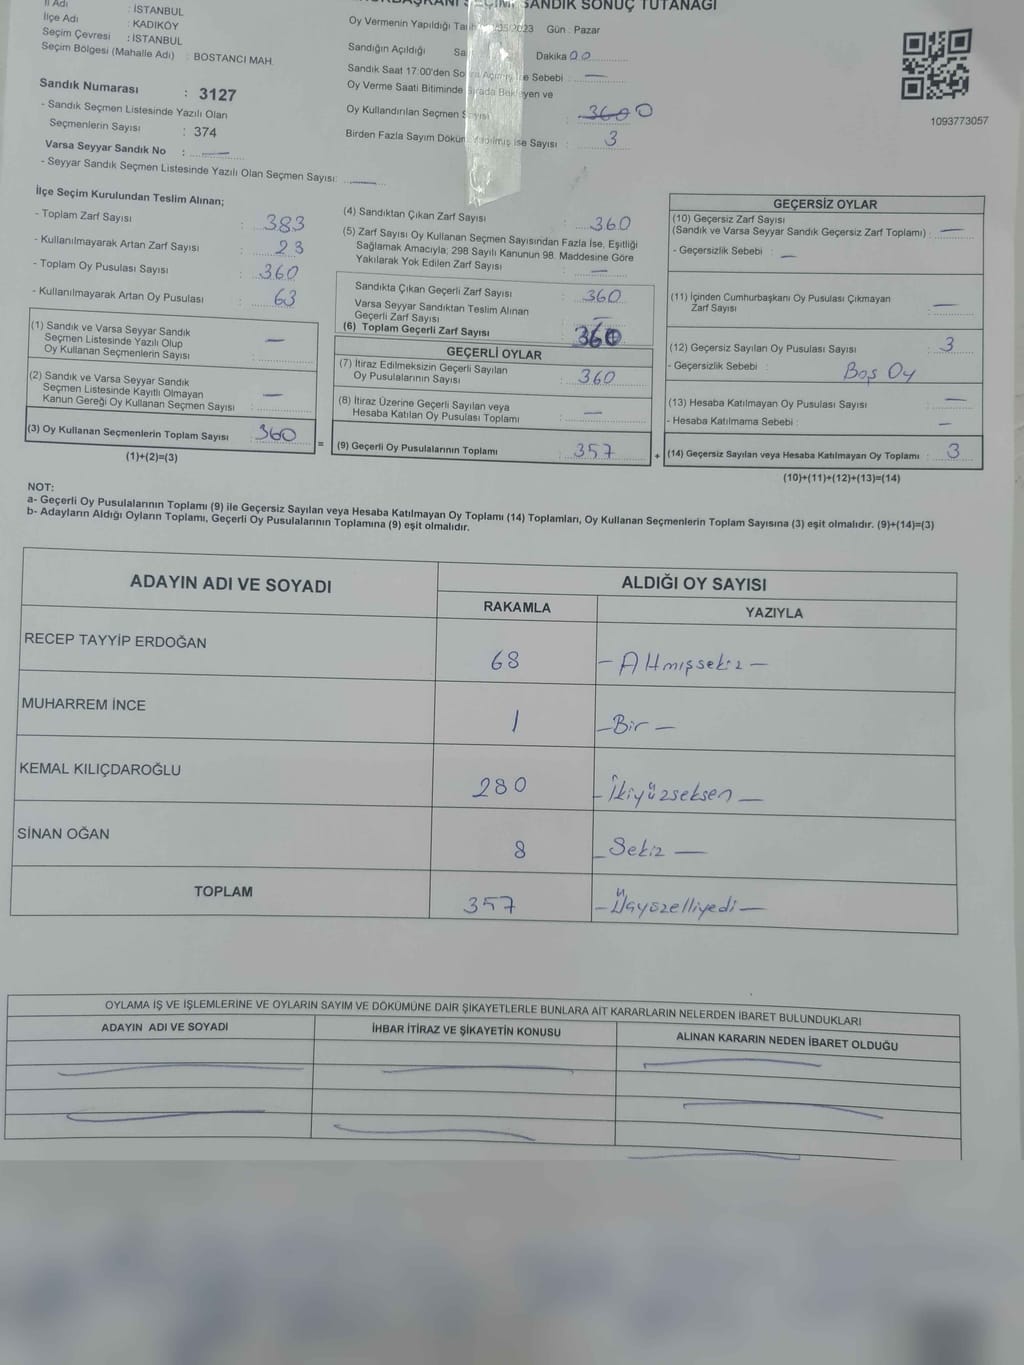 SANDIK SONUÇ TUTANAĞI
İl Adı : İSTANBUL
İlçe Adı : KADIKÖY
Seçim Çevresi : İSTANBUL
Seçim Bölgesi (Mahalle Adı) : BOSTANCI MAH.
Sandık Numarası : 3127
- Sandık Seçmen Listesinde Yazılı Olan
Seçmenlerin Sayısı : 374
Varsa Seyyar Sandık No : —
- Seyyar Sandık Seçmen Listesinde Yazılı Olan Seçmen Sayısı: —
Oy Vermenin Yapıldığı 2023 Gün : Pazar
Sandığın Açıldığı Dakika 00
Sandık Saat 17:00'den Sebebi : —
Oy Verme Saati Bitiminde ve
Oy Kullandırılan Seçmen : 360 0
Birden Fazla Sayım Döküm Yapılmış ise Sayısı : 3
1093773057
İlçe Seçim Kurulundan Teslim Alınan;
- Toplam Zarf Sayısı : 383
- Kullanılmayarak Artan Zarf Sayısı : 23
- Toplam Oy Pusulası Sayısı : 360
- Kullanılmayarak Artan Oy Pusulası : 63
(1) Sandık ve Varsa Seyyar Sandık
Seçmen Listesinde Yazılı Olup
Oy Kullanan Seçmenlerin Sayısı : —
(2) Sandık ve Varsa Seyyar Sandık
Seçmen Listesinde Kayıtlı Olmayan
Kanun Gereği Oy Kullanan Seçmen Sayısı : —
(3) Oy Kullanan Seçmenlerin Toplam Sayısı : 360
(1)+(2)=(3)
=
(4) Sandıktan Çıkan Zarf Sayısı : 360
(5) Zarf Sayısı Oy Kullanan Seçmen Sayısından Fazla İse, Eşitliği
Sağlamak Amacıyla; 298 Sayılı Kanunun 98. Maddesine Göre
Yakılarak Yok Edilen Zarf Sayısı : —
Sandıkta Çıkan Geçerli Zarf Sayısı : 360
Varsa Seyyar Sandıktan Teslim Alınan
Geçerli Zarf Sayısı : —
(6) Toplam Geçerli Zarf Sayısı 360
GEÇERLİ OYLAR
(7) İtiraz Edilmeksizin Geçerli Sayılan
Oy Pusulalarının Sayısı : 360
(8) İtiraz Üzerine Geçerli Sayılan veya
Hesaba Katılan Oy Pusulası Toplamı : —
(9) Geçerli Oy Pusulalarının Toplamı : 357
+
GEÇERSİZ OYLAR
(10) Geçersiz Zarf Sayısı
(Sandık ve Varsa Seyyar Sandık Geçersiz Zarf Toplamı) : —
- Geçersizlik Sebebi : —
(11) İçinden Cumhurbaşkanı Oy Pusulası Çıkmayan
Zarf Sayısı : —
(12) Geçersiz Sayılan Oy Pusulası Sayısı : 3
- Geçersizlik Sebebi : Boş Oy
(13) Hesaba Katılmayan Oy Pusulası Sayısı : —
- Hesaba Katılmama Sebebi : —
(14) Geçersiz Sayılan veya Hesaba Katılmayan Oy Toplamı : 3
(10)+(11)+(12)+(13)=(14)
NOT:
a- Geçerli Oy Pusulalarının Toplamı (9) ile Geçersiz Sayılan veya Hesaba Katılmayan Oy Toplamı (14) Toplamları, Oy Kullanan Seçmenlerin Toplam Sayısına (3) eşit olmalıdır. (9)+(14)=(3)
b- Adayların Aldığı Oyların Toplamı, Geçerli Oy Pusulalarının Toplamına (9) eşit olmalıdır.
ADAYIN ADI VE SOYADI ALDIĞI OY SAYISI
RAKAMLA YAZIYLA
RECEP TAYYİP ERDOĞAN 68 — Altmışsekiz —
MUHARREM İNCE 1 — Bir —
KEMAL KILIÇDAROĞLU 280 — İkiyüzseksen —
SİNAN OĞAN 8 — Sekiz —
TOPLAM 357 — Üçyüzelliyedi —
OYLAMA İŞ VE İŞLEMLERİNE VE OYLARIN SAYIM VE DÖKÜMÜNE DAİR ŞİKAYETLERLE BUNLARA AİT KARARLARIN NELERDEN İBARET BULUNDUKLARI
ADAYIN ADI VE SOYADI İHBAR İTİRAZ VE ŞİKAYETİN KONUSU ALINAN KARARIN NEDEN İBARET OLDUĞU